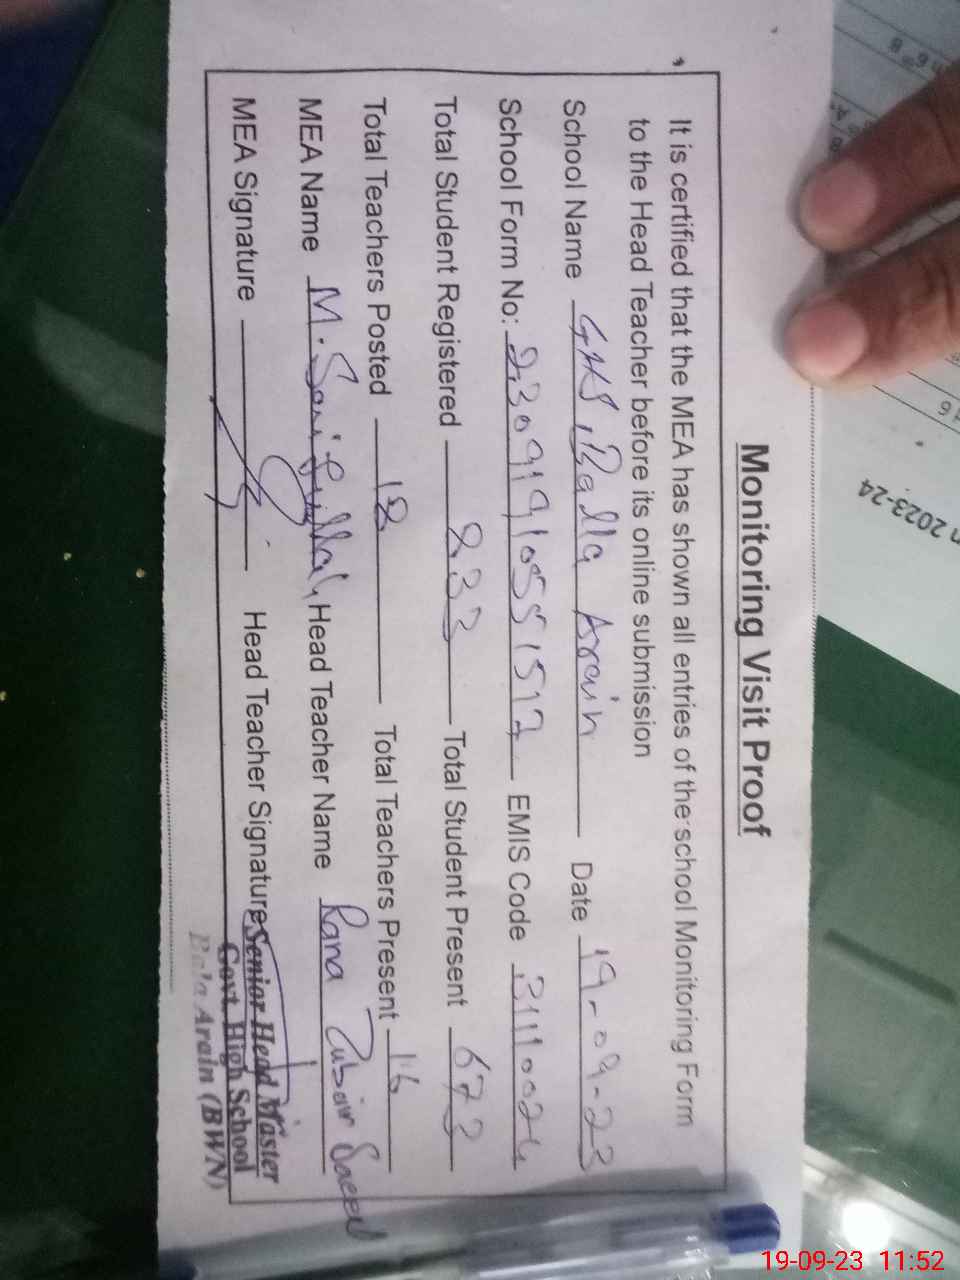 Monitoring Visit Proof
It is certified that the MEA has shown all entries of the school Monitoring Form
to the Head Teacher before its online submission
School Name GHS, Balla Arain Date 19-09-23
School Form No: EMIS Code 31110024
Total Student Registered 833 Total Student Present 673
Total Teachers Posted 18 Total Teachers Present 16
MEA Name M. Saifullah Head Teacher Name Rana Zubair Saeed
MEA Signature Head Teacher Signature
Senior Head Master
Govt. High School
Bala Arain (BWN)
n 2023-24
19-09-23 11:52